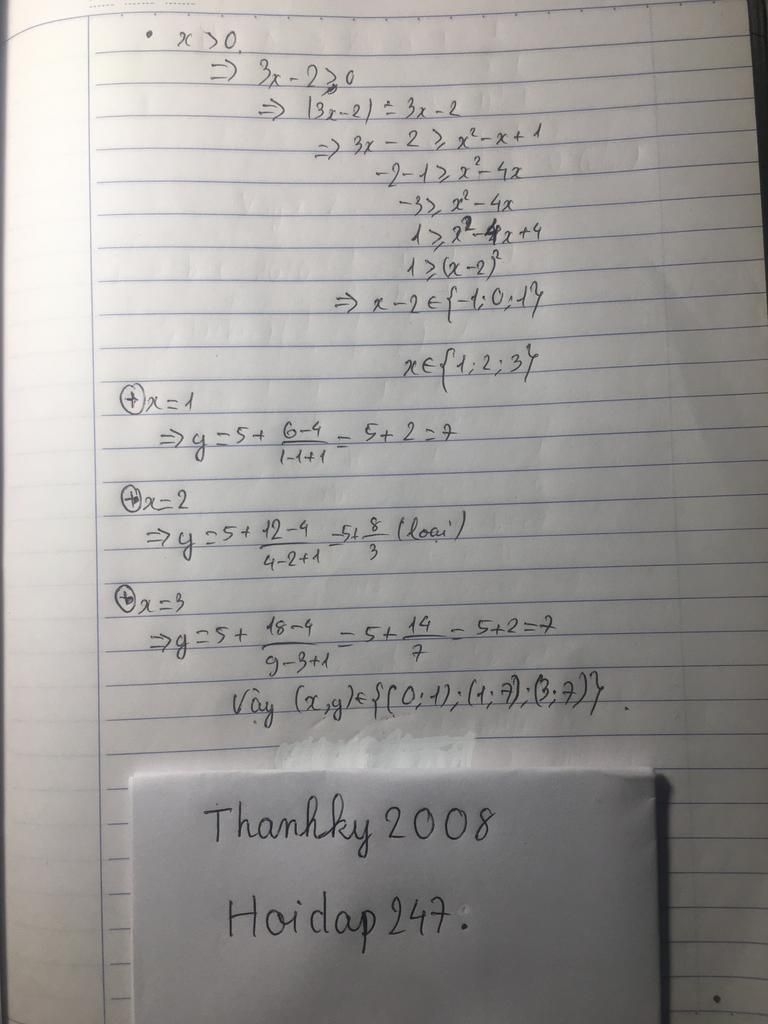 • x > 0.
⇒ 3x - 2 ≥ 0
⇒ |3x-2| = 3x-2
⇒ 3x - 2 ≥ x² - x + 1
-2-1 ≥ x² - 4x
-3 ≥ x² - 4x
1 ≥ x² - 4x + 4
1 ≥ (x-2)²
⇒ x - 2 ∈ {-1; 0; 1}
x ∈ {1; 2; 3}
⊕ x = 1
⇒ y = 5 + (6-4)/(1-1+1) = 5 + 2 = 7
⊕ x = 2
⇒ y = 5 + (12-4)/(4-2+1) = 5 + 8/3 (loại)
⊕ x = 3
⇒ y = 5 + (18-4)/(9-3+1) = 5 + 14/7 = 5+2 = 7
Vậy (x,y) ∈ {(0; 1); (1; 7); (3; 7)}.
Thanhky 2008
Hoidap 247.